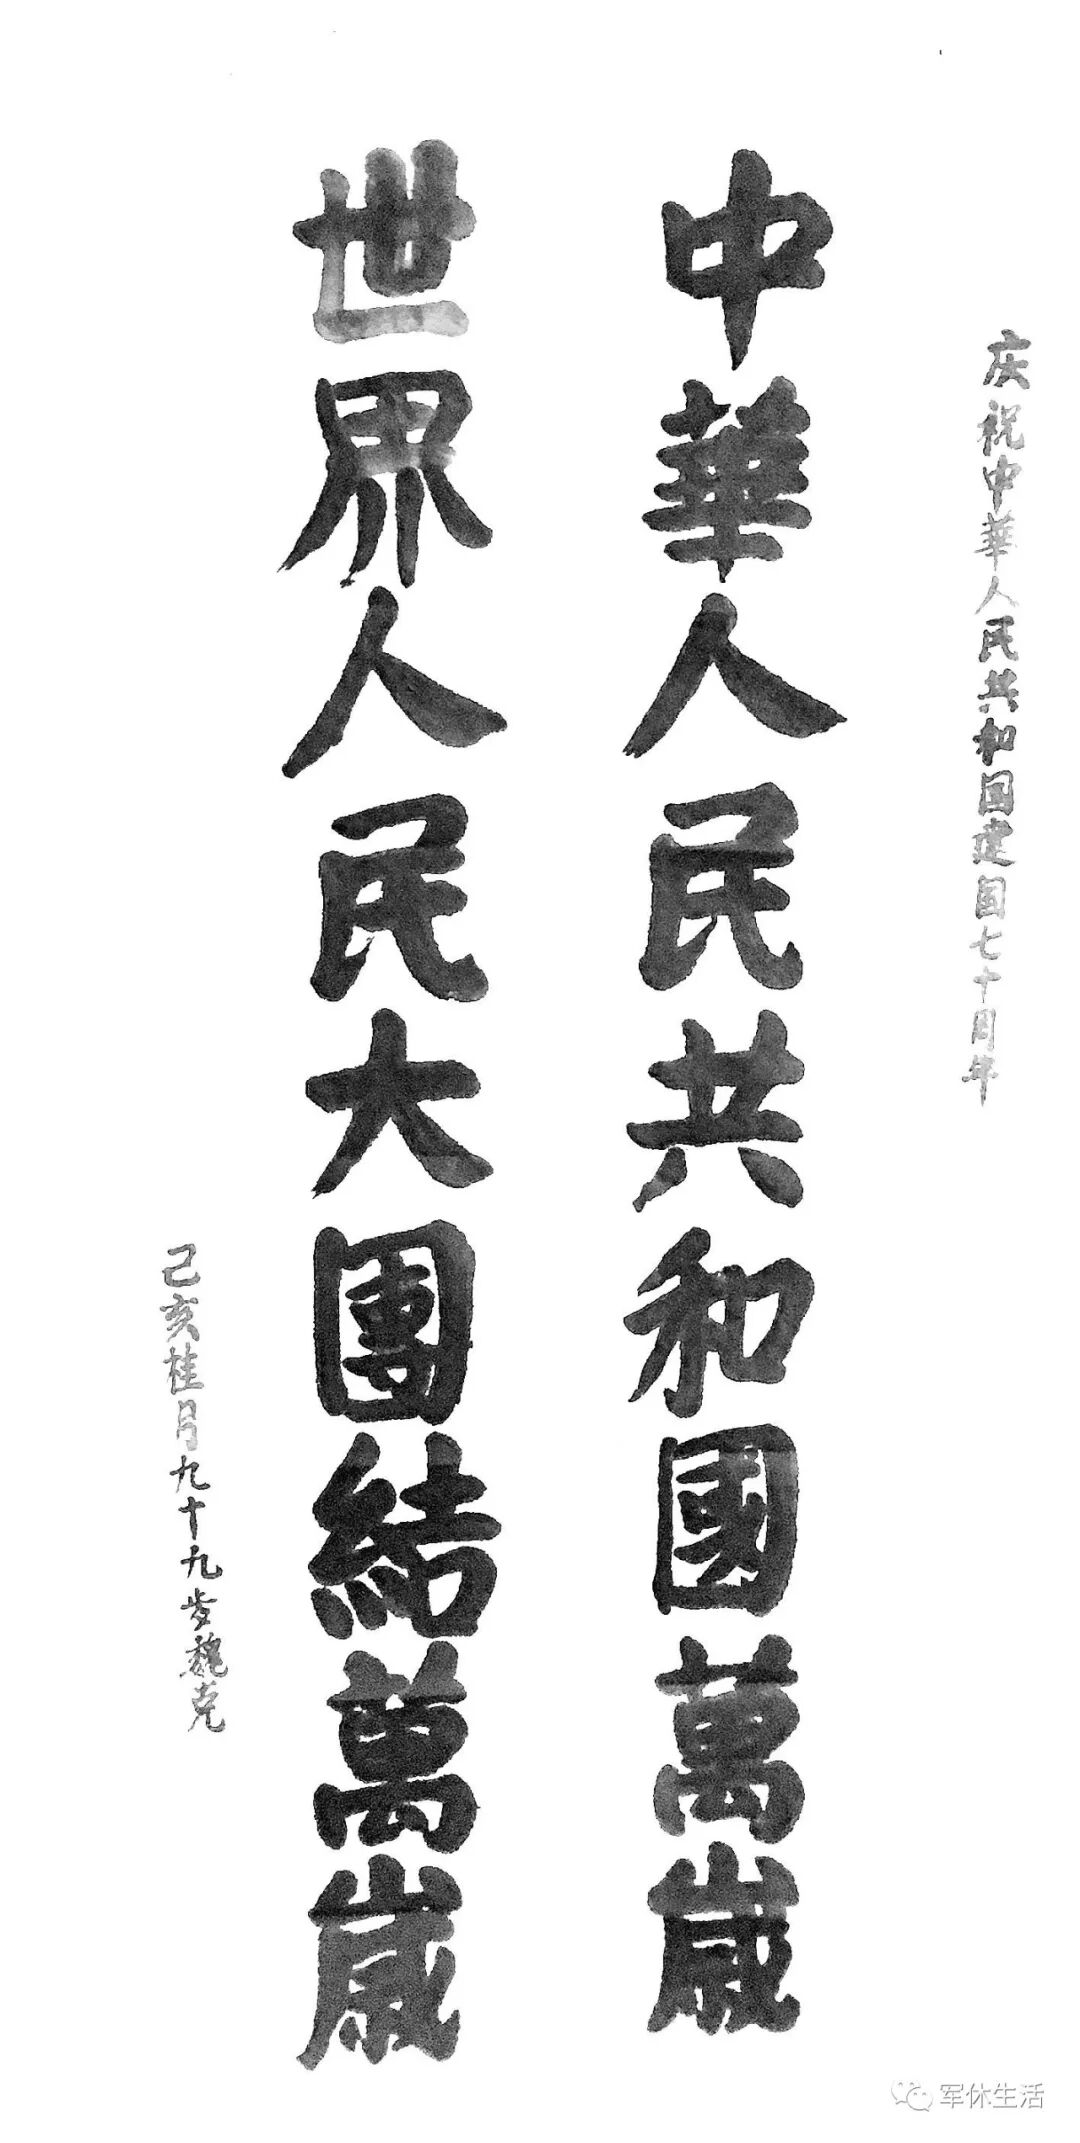 庆祝中華人民共和国建国七十周年
中華人民共和國萬歲
世界人民大團結萬歲
己亥桂月九十九岁魏克
军休生活